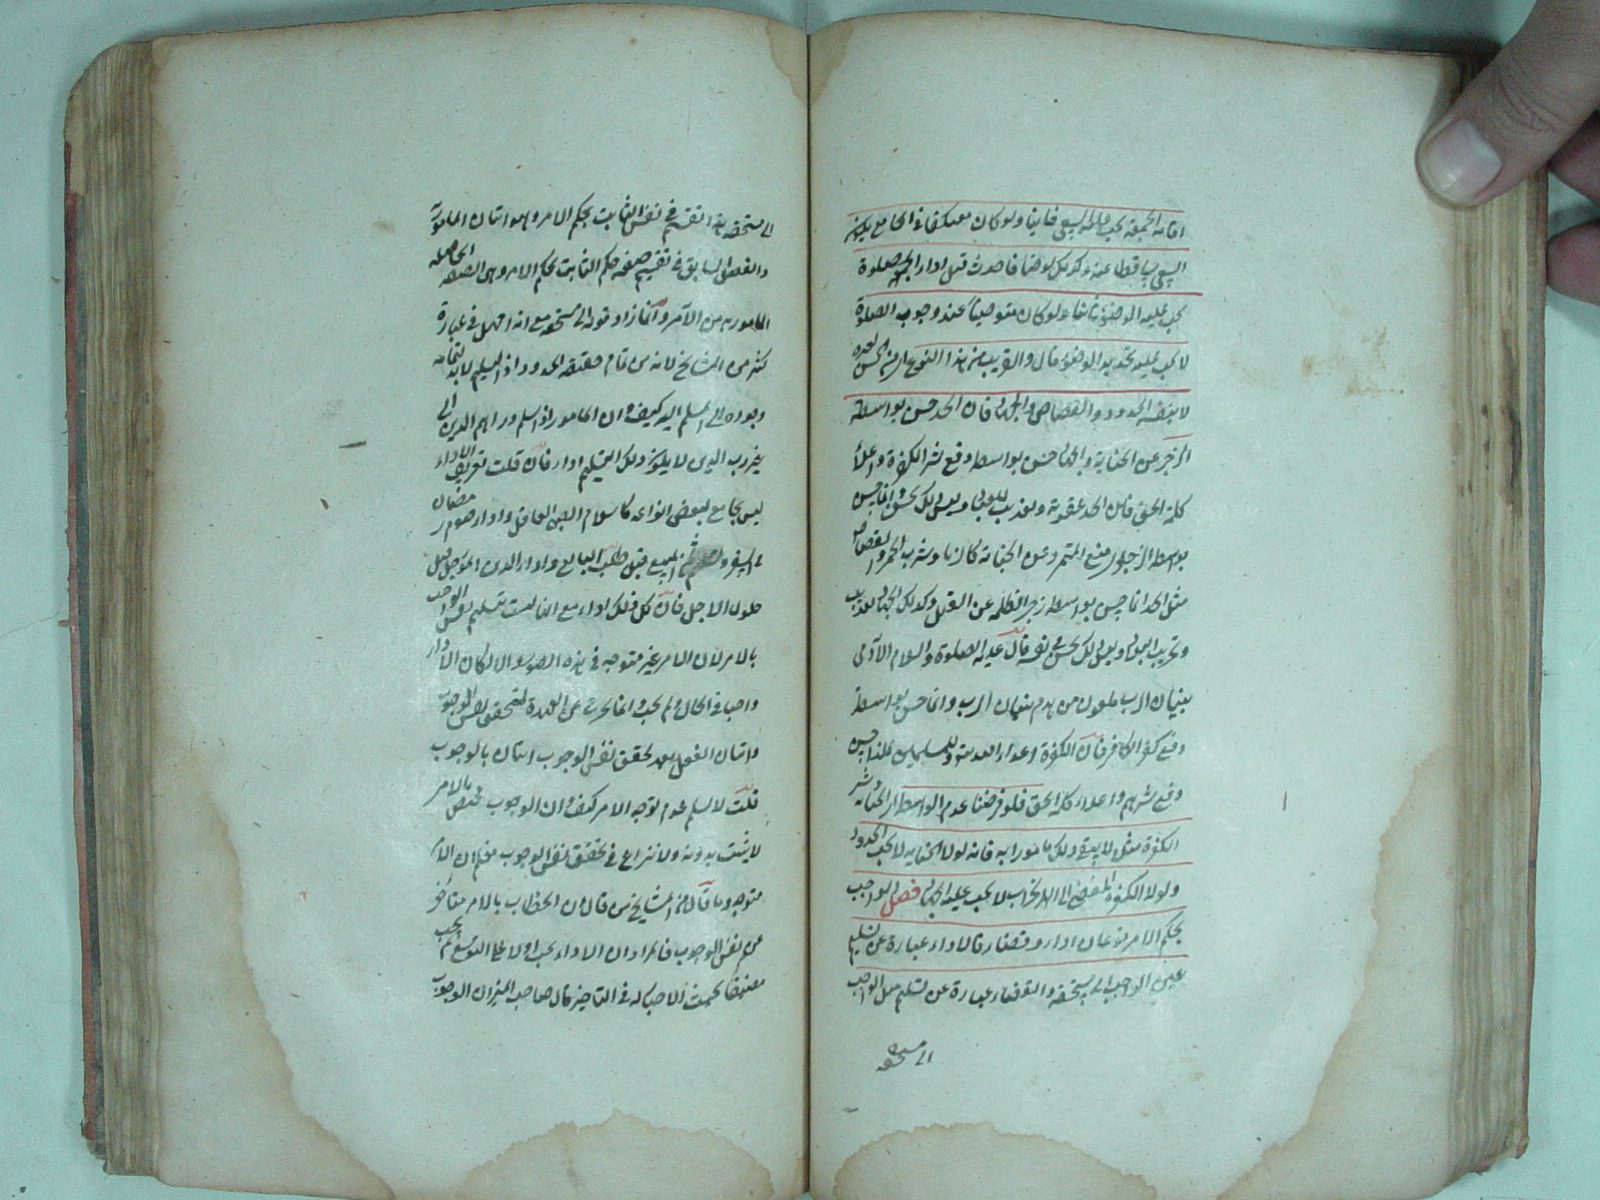 اقامة الجمعة يجب عليه السعي ثانيا ولو كان معتكفا في الجامع يكون
السعي ساقطا عنه وكذلك لو توضأ فاحدث قبل اداء الصلوة
يجب عليه الوضوء ثانيا ولو كان متوضيا عند وجوب الصلوة
لا يجب عليه تجديد الوضوء قال والقريب من هذا النوع اي من الحسن لغيره
لا بنفسه الحدود والقصاص والجهاد فان الحد حسن بواسطة
الزجر عن الجناية والجهاد حسن بواسطة دفع شر الكفرة واعلاء
كلمة الحق فان الحد عقوبة وتعذيب للعباد وليس ذلك بحسن وانما حسن
بواسطة الزجر اي منع المتمرد عن الجناية كالزنا وشرب الخمر والقصاص
مثل الحد انما حسن بواسطة زجر الظلمة عن القتل وكذلك الجهاد تعذيب
وتخريب البلاد وليس ذلك بحسن في نفسه قال عليه الصلوة والسلام الآدمي
بنيان الرب ملعون من هدم بنيان الرب وانما حسن بواسطة
دفع كفر الكافر فان الكفرة اعداء الله وللمسلمين فلذا حسن
دفع شرهم واعلاء كلمة الحق فلو فرضنا عدم الواسطة اي الجناية وشر
الكفرة مثلا لا يبقى ذلك مامورا به فانه لولا الجناية لا يجب الحدود
ولولا الكفرة المفضي الى الحراب لا يجب عليه الجهاد فصل الواجب
بحكم الامر نوعان اداء وقضاء فالاداء عبارة عن تسليم
عين الواجب الى مستحقه والقضاء عبارة عن تسليم مثل الواجب
الى مستحقه
الى مستحقه هذا تقسيم في نفس الثابت بحكم الامر وهو اتيان المامور به
والفصل السابق في تقسيم صفة حكم الثابت بحكم الامر وهي الصفة الحاصلة
للمامور به من الآمر وانما زاد قوله الى مستحقه مع انه اهمل في عبارة
كثير من المشايخ لانه من تمام حقيقة الحدود اذ التسليم لا بد لتمامه
وجوده الى المسلم اليه كيف وان المامور لو اسلم دراهم الدين الى
غير رب الدين لا يكون ذلك التسليم اداء فان قلت تعريف الاداء
ليس بجامع لبعض انواعه كاسلام الصبي العاقل واداء صوم رمضان
في السفر وتسليم المبيع قبل طلب البايع واداء الدين المؤجل قبل
حلول الاجل فان كل ذلك اداء مع انها ليست تسليم نفس الواجب
بالامر لان الامر غير متوجه في هذه الصور والا لكان الاداء
واجبا في الحال ولم يجب وانما يخرج عن العهدة لتحقق نفس الوجوب
واتيان الفعل بعد تحقق نفس الوجوب اتيان بالوجوب
قلت لا نسلم عدم توجه الامر كيف وان الوجوب مختص بالامر
لا يثبت بدونه ولا نزاع في تحقق نفس الوجوب فعلم ان الامر
متوجه وما قال من المشايخ من قال ان الخطاب بالامر متأخر
عن نفس الوجوب فالمراد ان الاداء يجب اولا على التوسع ثم يجب
مضيقا بحيث لا حيلة له في التاخير قال صاحب الميزان الوجوب